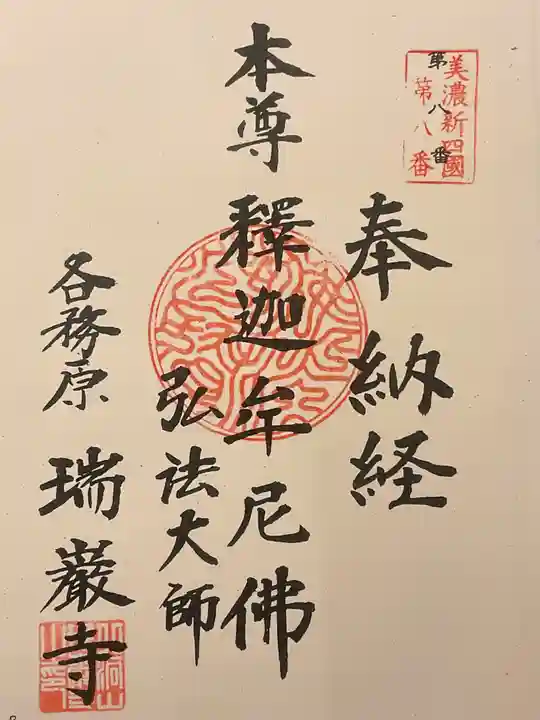 美濃新四國
第八番
第八番
奉納経
本尊 釋迦牟尼佛
弘法大師
各務原 瑞巖寺